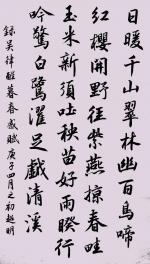 日暖千山翠林幽百鳥啼
紅櫻開野徑紫燕掠春畦
玉米新須吐秧苗好雨睽行
吟驚白鷺濯足戲清溪
錄吴律暮春感賦庚子四月之初趙明